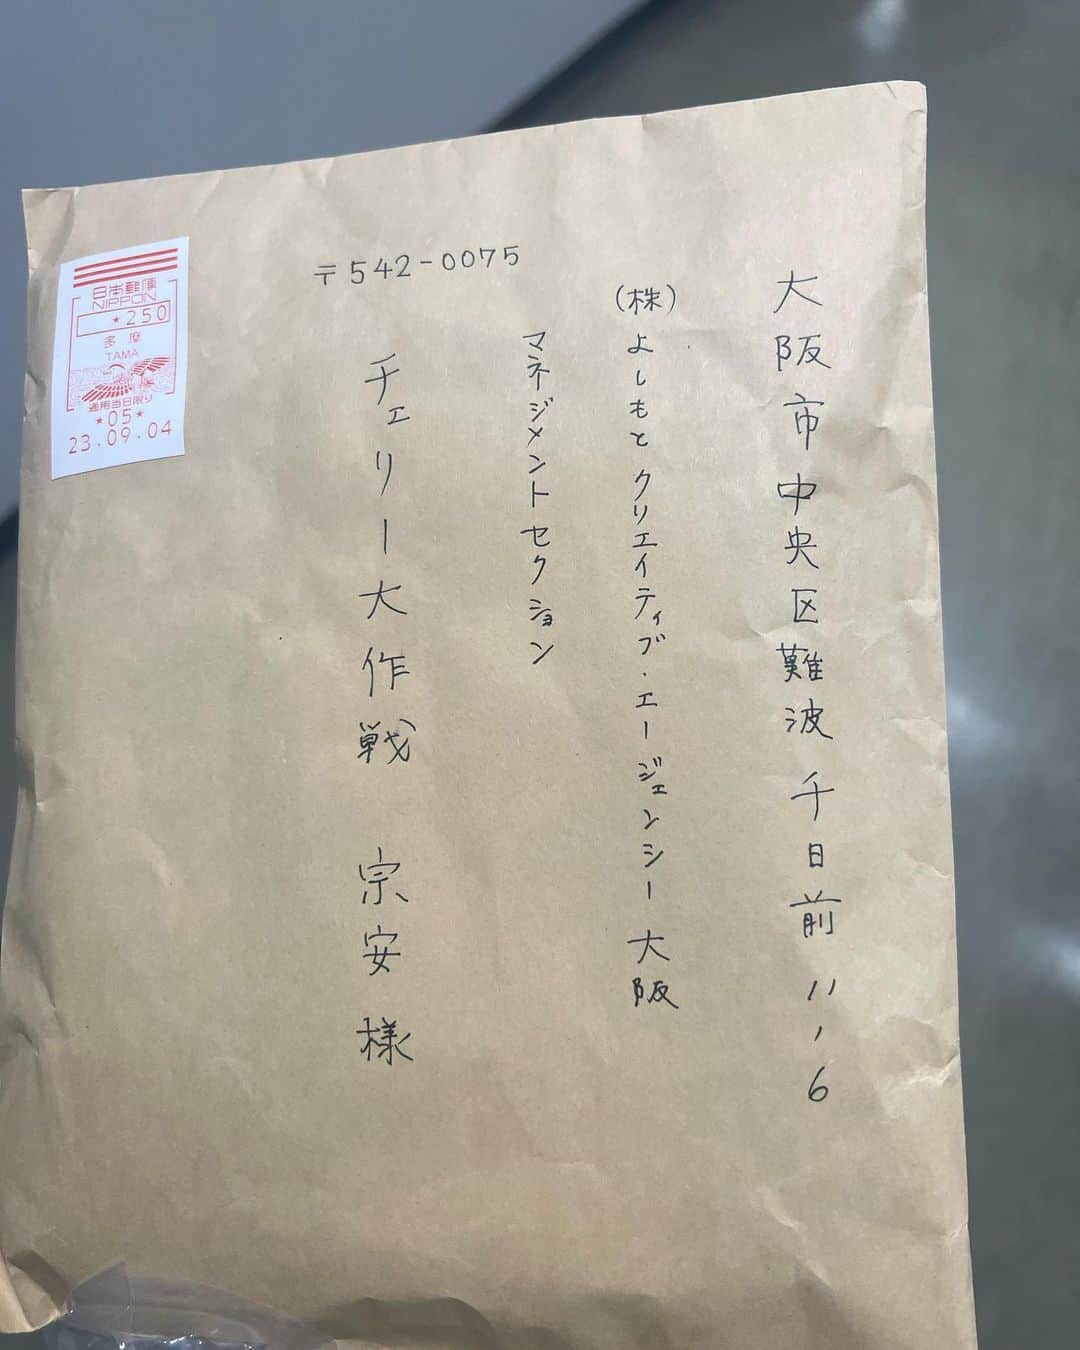 日本郵便
NIPPON
★250
多摩
TAMA
適用当日限り
★05★
23.09.04
〒542-0075
大阪市中央区難波千日前11、6
(株)よしもとクリエイティブ・エージェンシー大阪
マネジメントセクション
チェリー大作戦 宗安様